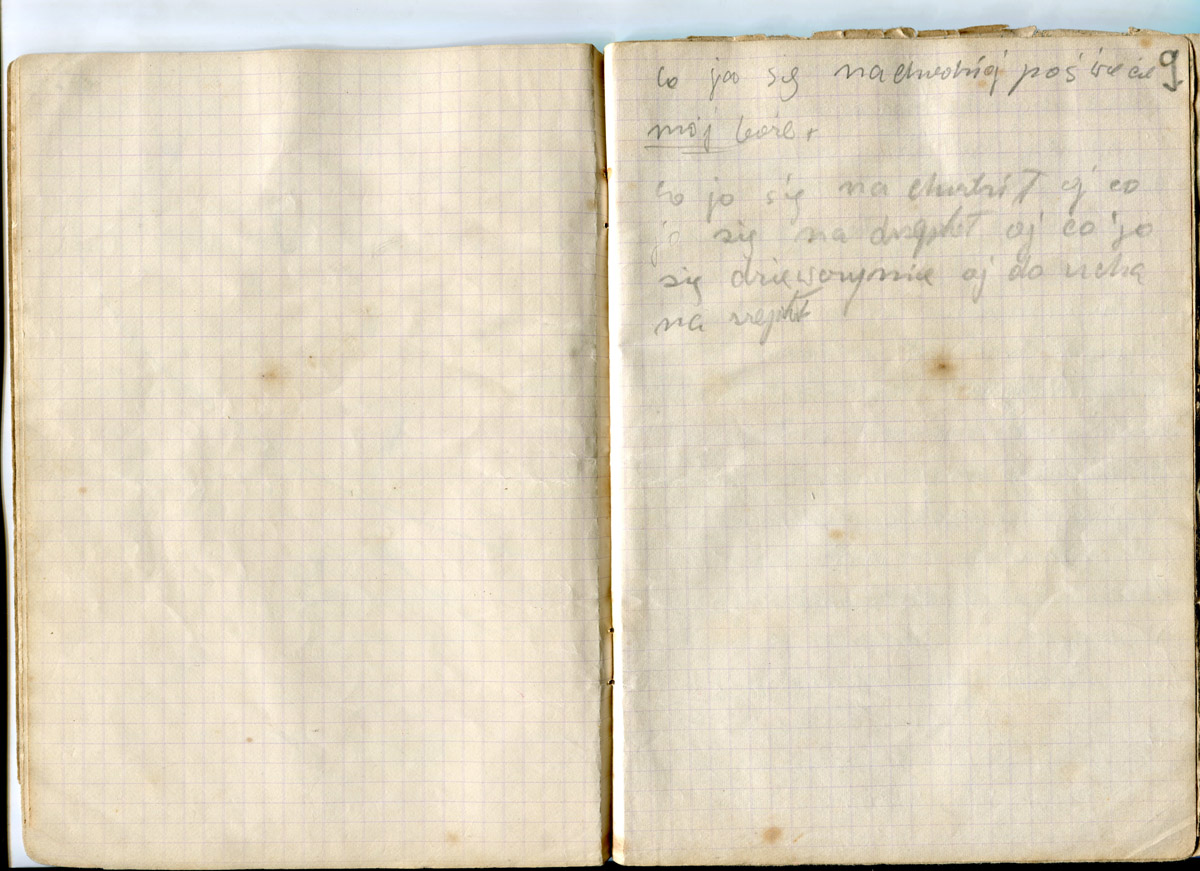 9
co ja się nachodziół po świecie
mój boże.
co jo się na chodziół oj co
jo się na deptół oj co jo
się dziewczynie oj do ucha
na szeptół